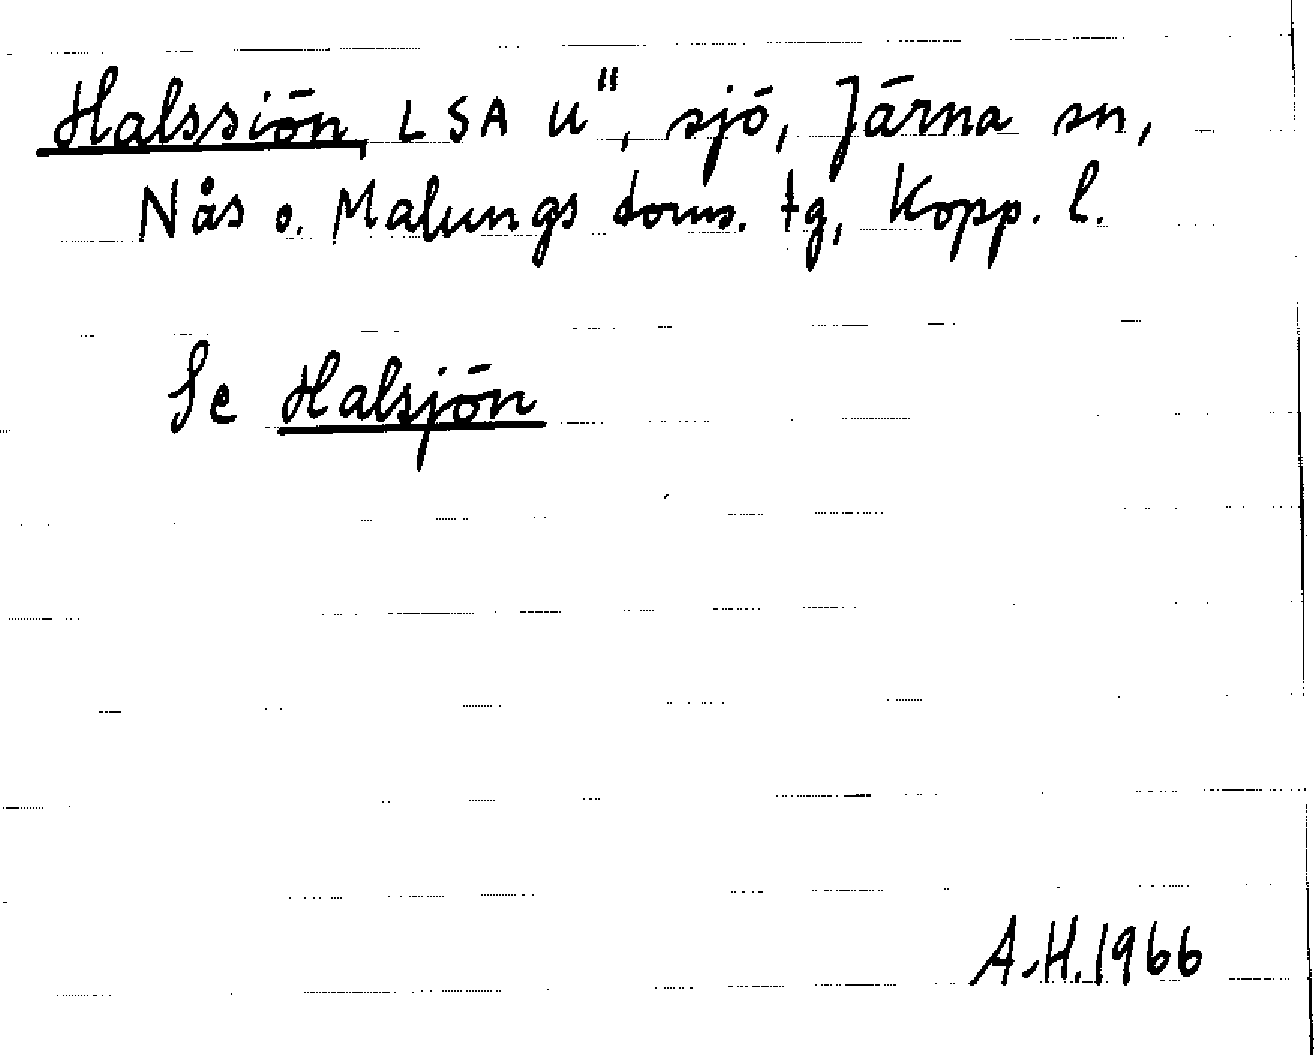 Halssiön, LSA U", sjö, Järna sn,
Nås o. Malungs doms. tg, Kopp. l.
Se Halsjön
A.H. 1966